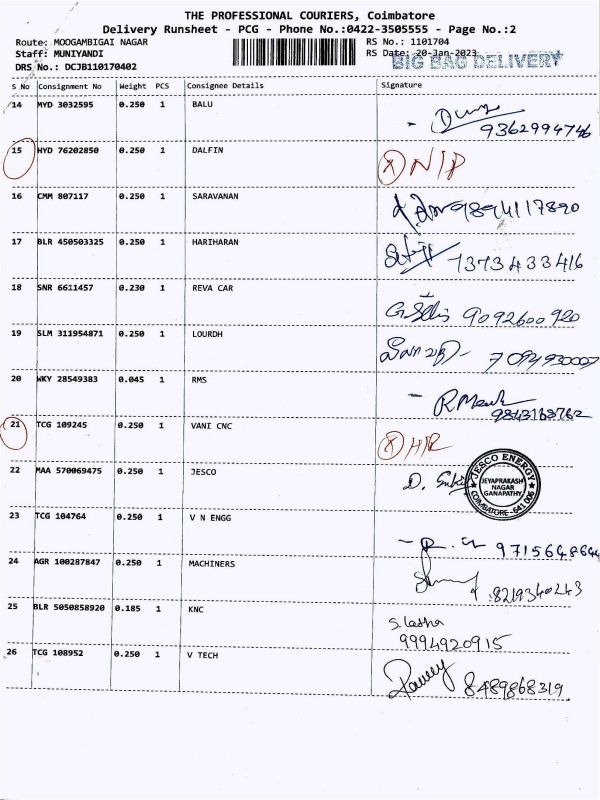 THE PROFESSIONAL COURIERS, Coimbatore
Delivery Runsheet - PCG - Phone No.:0422-3505555 - Page No.:2
Route: MOOGAMBIGAI NAGAR RS No.: 1101704
Staff: MUNIYANDI RS Date: 20-Jan-2023
BIG BAG DELIVERY
DRS No.: DCJB110170402
S No Consignment No Weight PCS Consignee Details Signature
14 MYD 3032595 0.250 1 BALU
9362994746
15 HYD 76202850 0.250 1 DALFIN
16 CMM 807117 0.250 1 SARAVANAN
9894117890
17 BLR 450503325 0.250 1 HARIHARAN
7373433416
18 SNR 6611457 0.230 1 REVA CAR
9092600920
19 SLM 311954871 0.250 1 LOURDH
7094930007
20 WKY 28549383 0.045 1 RMS
9843168762
21 TCG 109245 0.250 1 VANI CNC
22 MAA 570069475 0.250 1 JESCO
JESCO ENERGY
JEYAPRAKASH
NAGAR
GANAPATHY
COIMBATORE - 641 006
23 TCG 104764 0.250 1 V N ENGG
9715648644
24 AGR 100287847 0.250 1 MACHINERS
8219340243
25 BLR 5050858920 0.185 1 KNC
9994920915
26 TCG 108952 0.250 1 V TECH
8489868319